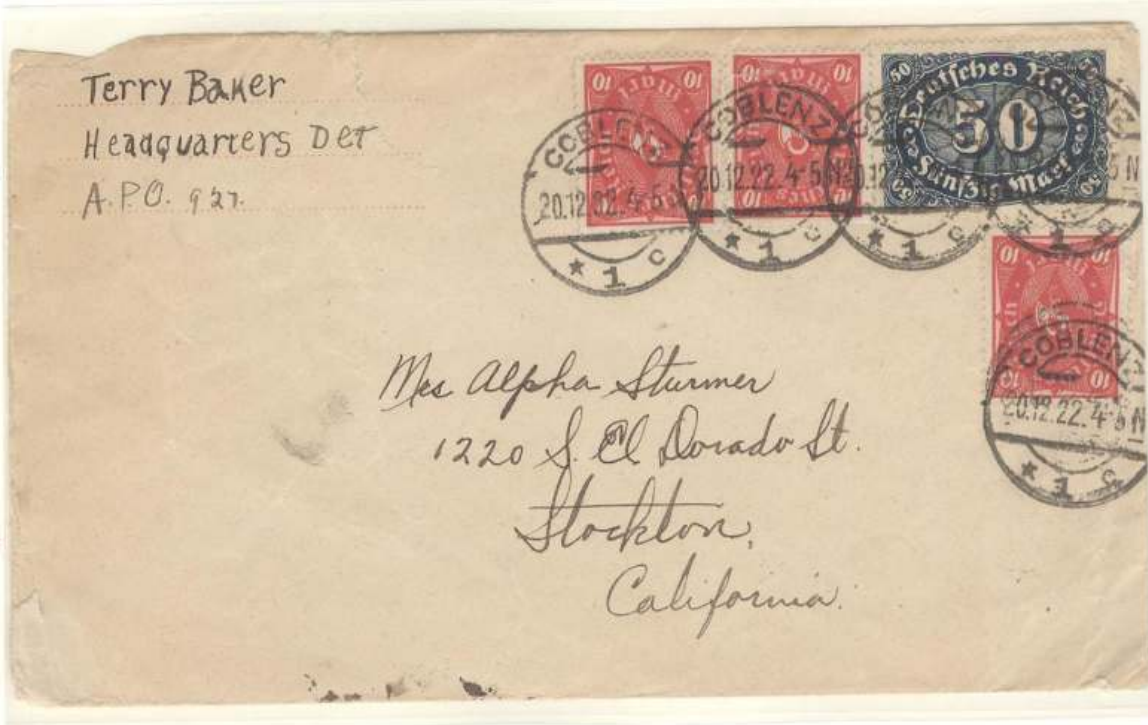 Terry Baker
Headquarters Det
A.P.O. 927.
10 10
COBLENZ
20.12.22.4-5 N
* 1 c
10 10
COBLENZ
20.12.22.4-5 N
* 1 c
50 Deutsches Reich
50
Fünfzig Mark
* 1 c
10 10
COBLENZ
20.12.22.4-5 N
* 1 c
Mrs Alpha Sturmer
1220 S. El Dorado St.
Stockton,
California.